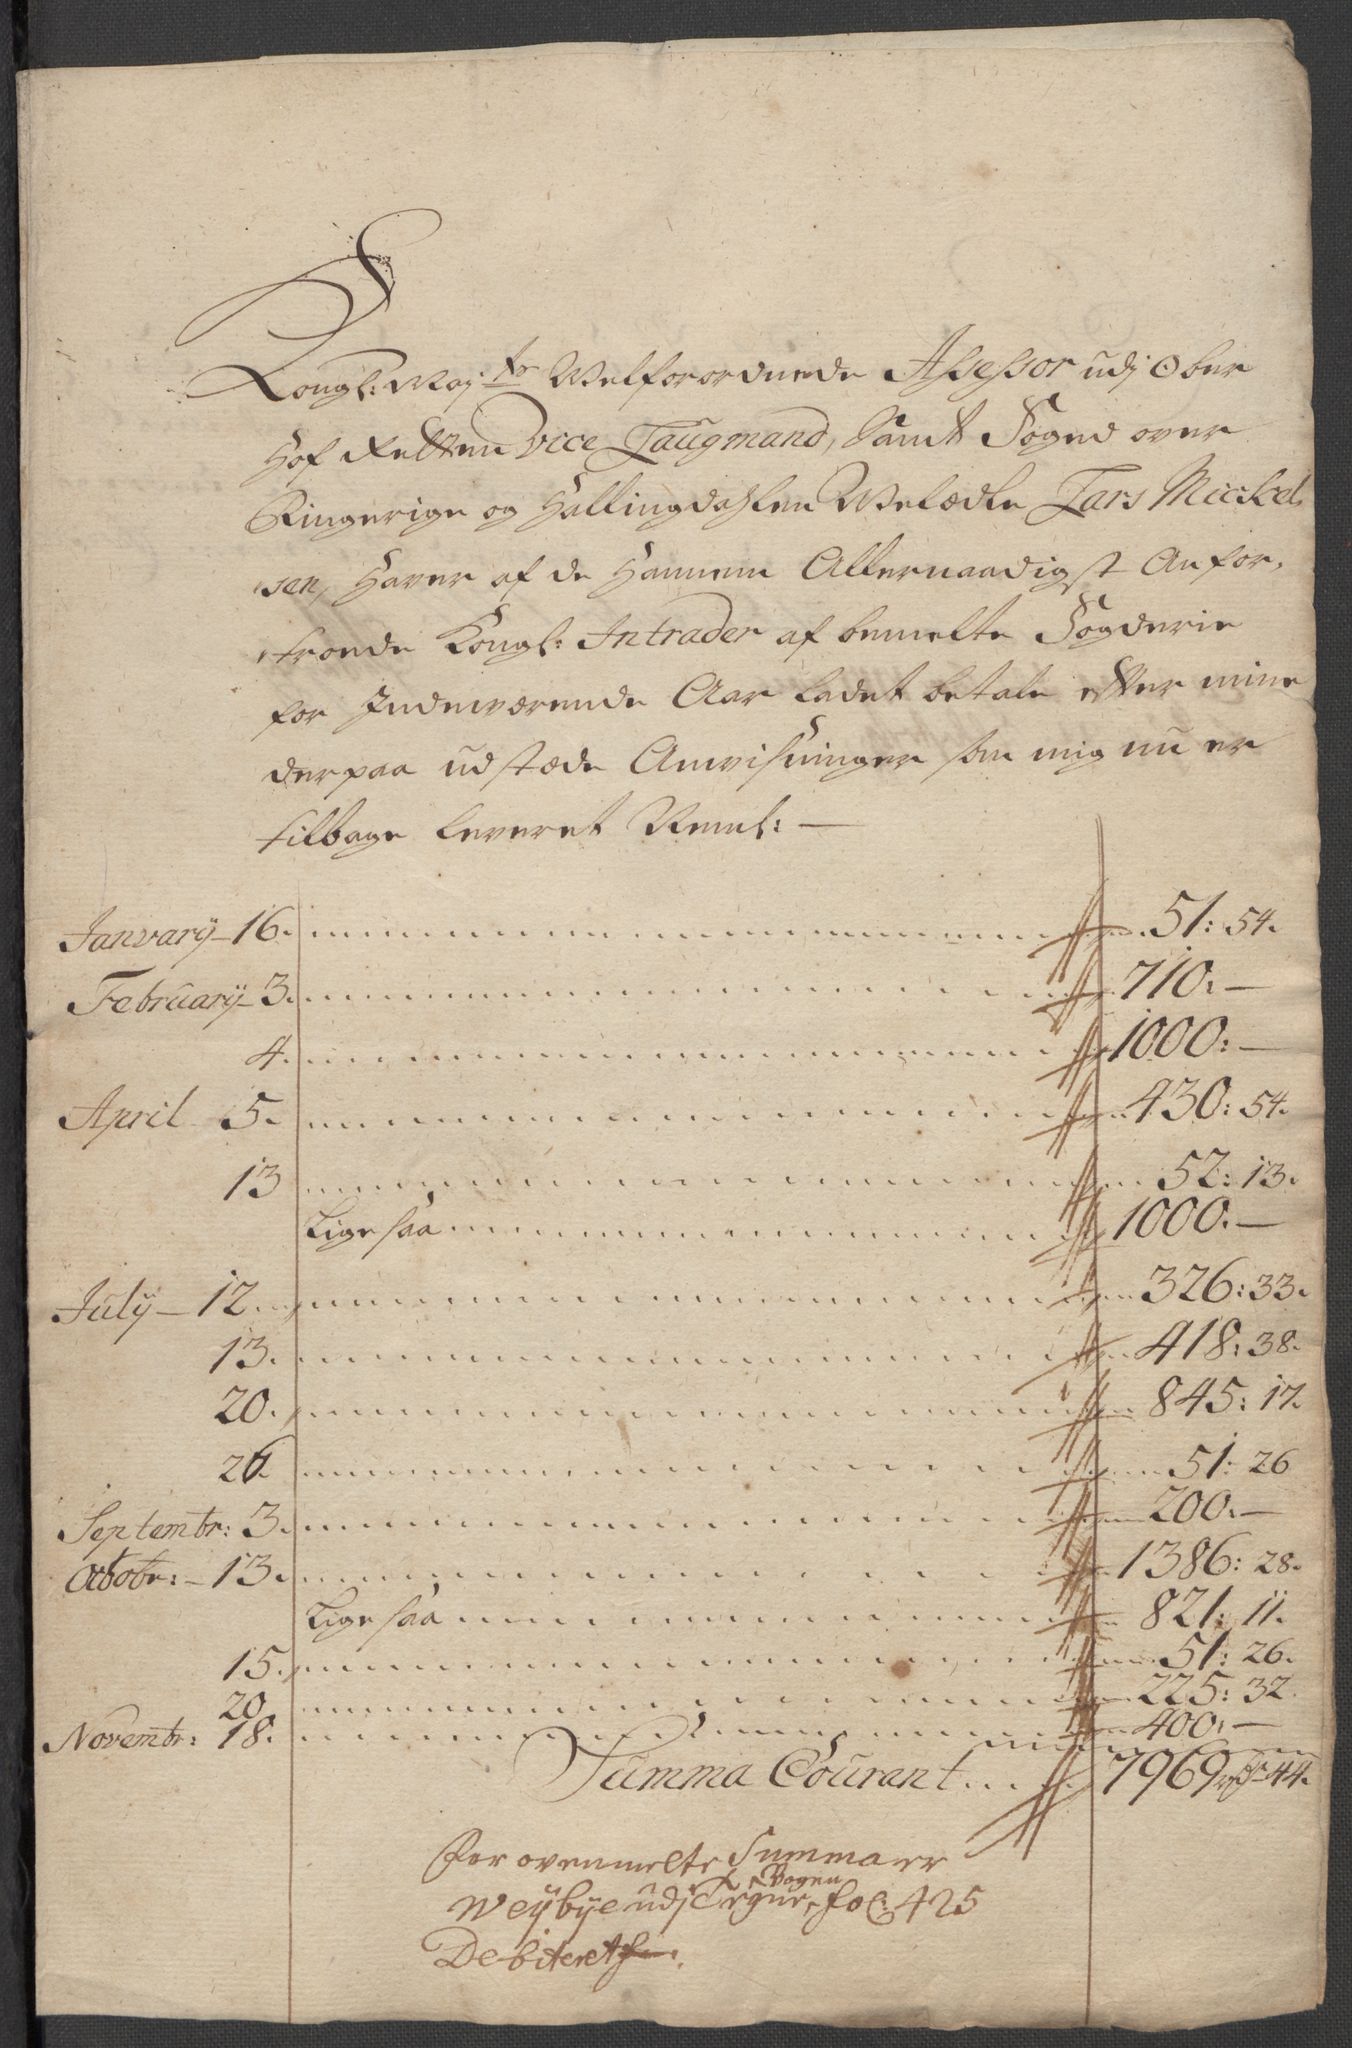 Kongl: Maj.ts Welforordnede Assessor udj Ober
Hof Retten Vice Laugmand, Samt Foged over
Ringerige og Hallingdahlen Welædle Lars Mickel
sen, Haver af de Hannem Allernaadigst Anfor,
troede Kongl: Intrader af bemelte Fogderie
for Indeværende Aar ladet betale effter mine
derpaa udstæde Anvisninger som mig nu er
tilbage leveret Neml: —
Janvary – 16. 51: 54.
February – 3. 710. —
4. 1000: —
April 5. 430: 54.
13 52: 13.
Lige saa 1000. —
July – 12 326: 33.
13. 418: 38.
20. 845: 17.
26. 51: 26
Septembr: 3. 200. —
Octobr: – 13. 1386: 28.
Lige saa 821: 11.
15. 51: 26.
20. 225: 32.
Novembr: 18. 400. —
Summa Courant 7969 rdr 44.
For ovenmelte Summa er
Weybye udj Regns. Bogen fol: 425
Debiteret